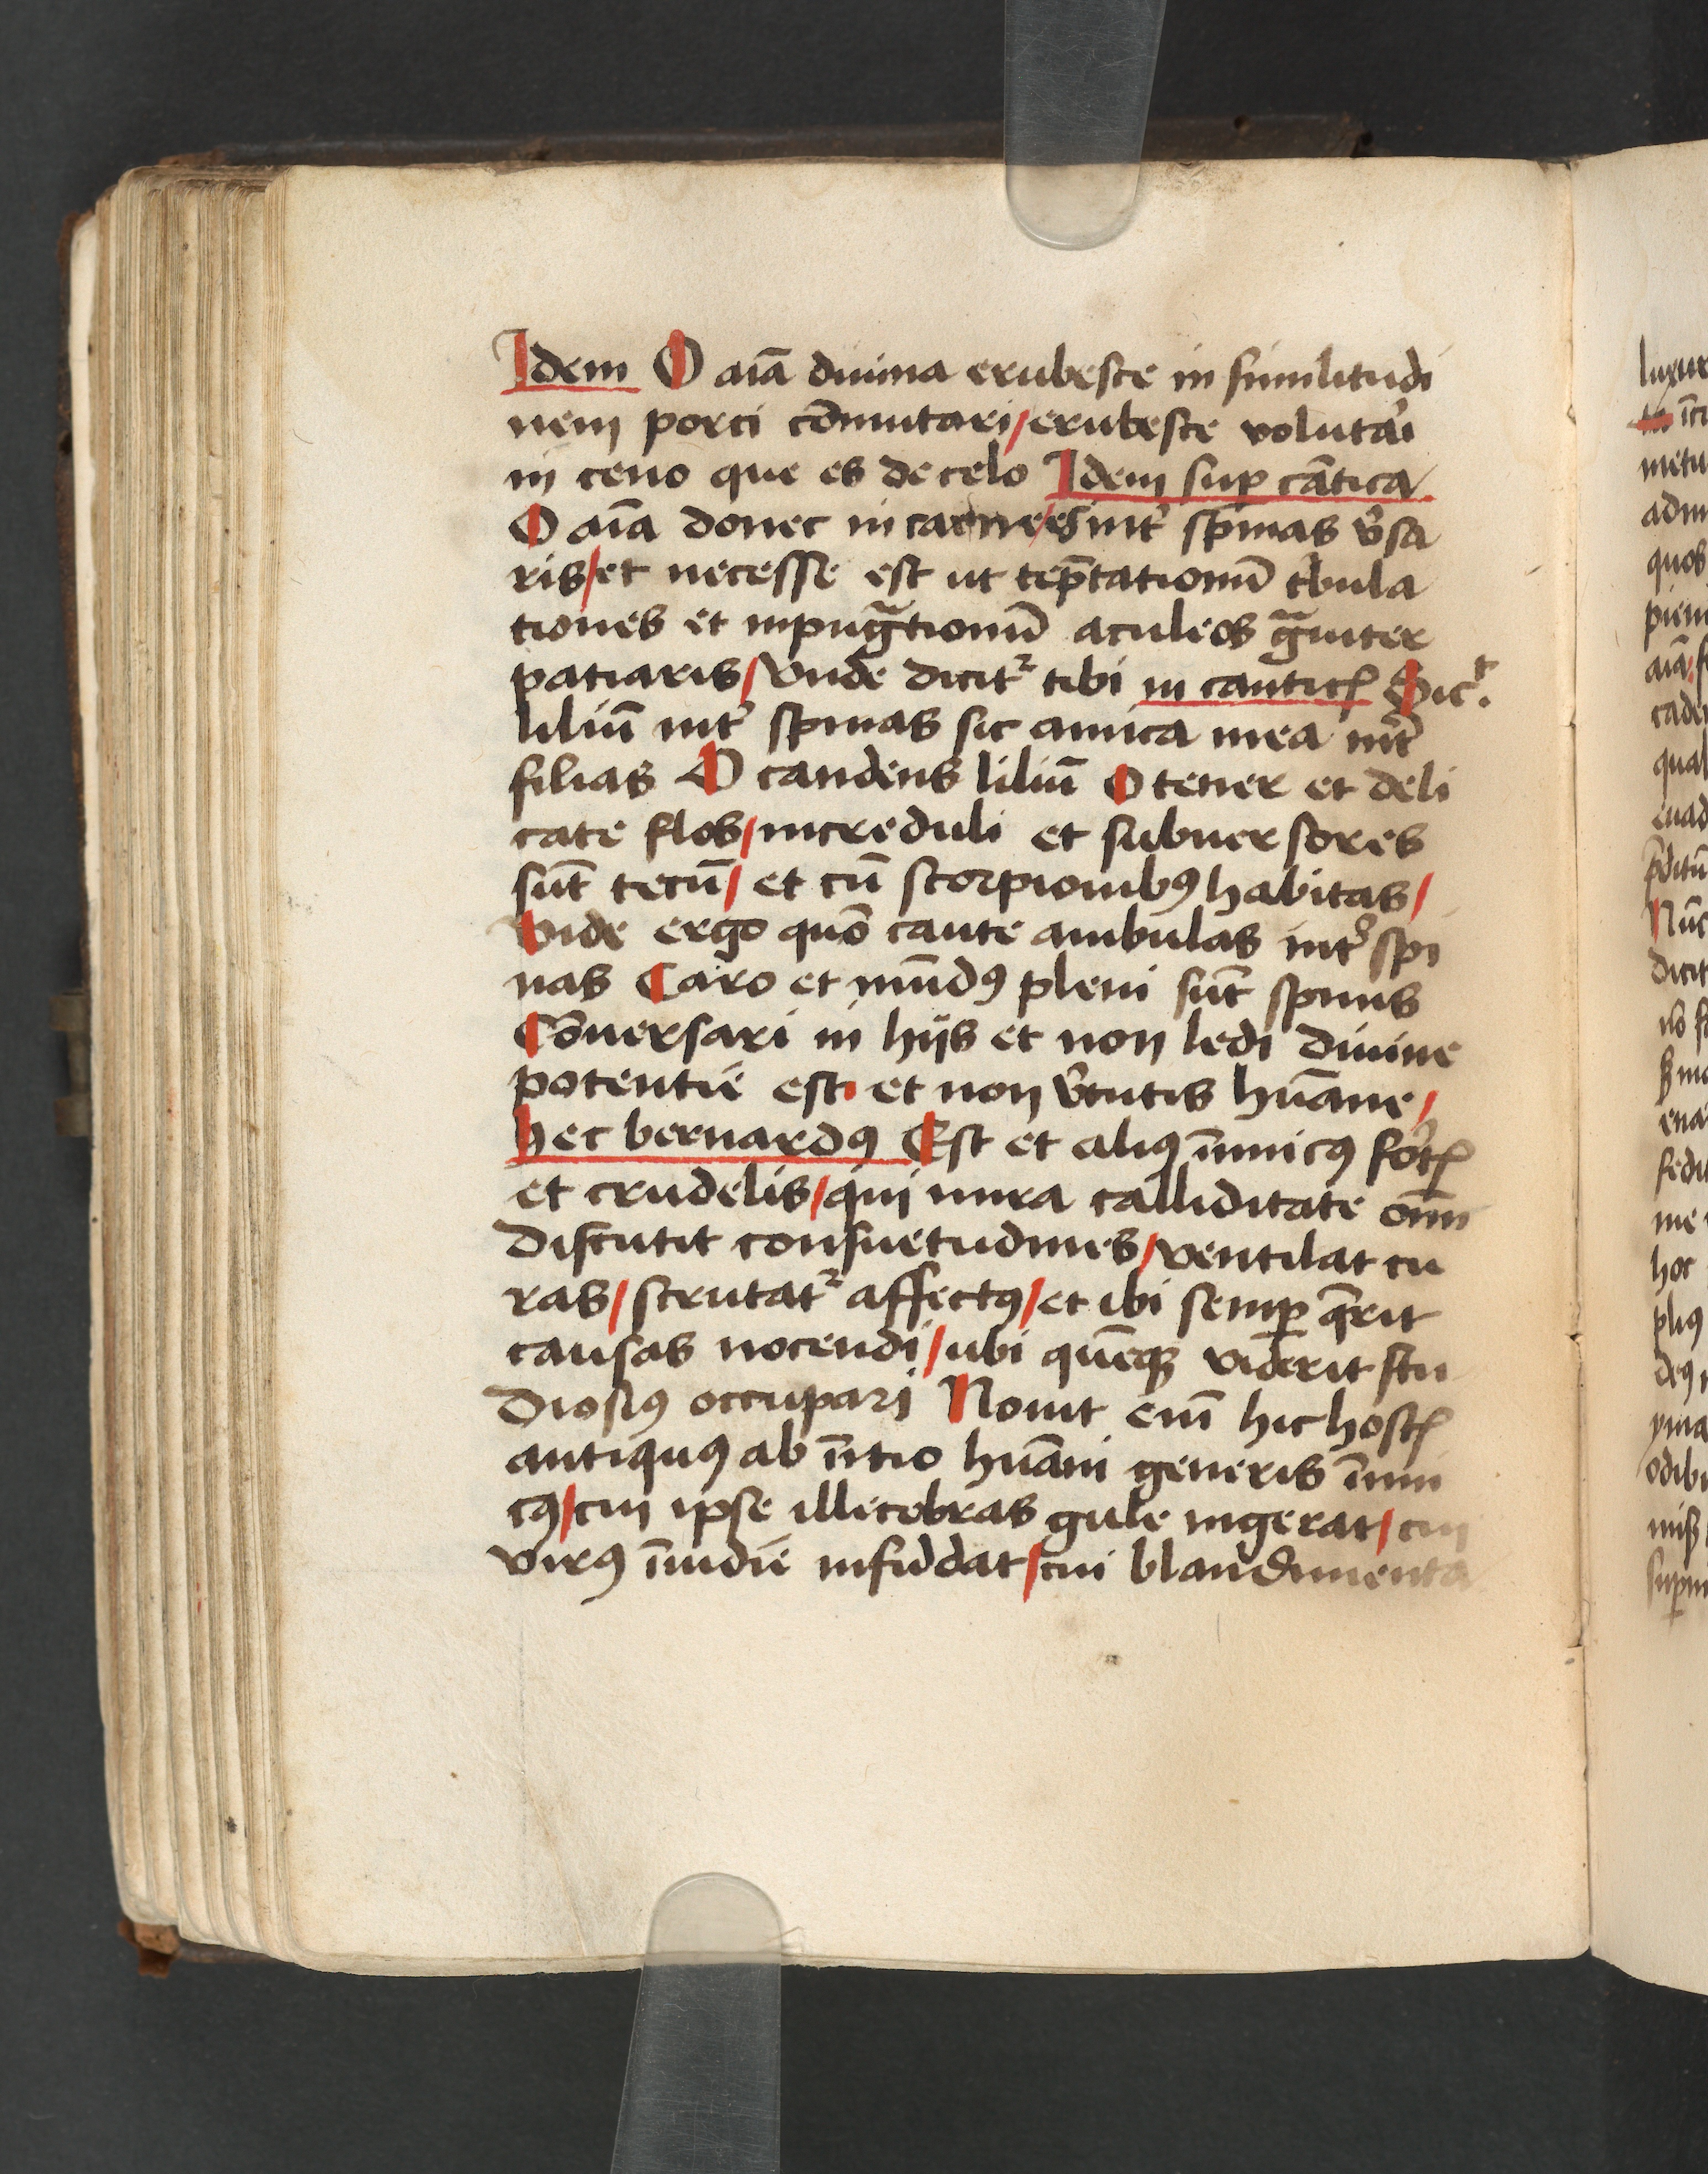 Idem O aīa diuina erubesce in similitudi
nem porci cōmutari / erubesce voluta᷑i
in ceno que es de celo Idem suꝑ cātica
O aīa donec in carne es int᷑ spinas v᷑sa
ris / et necesse est ut tēptationū t᷑bula
tiones et inpugātionū aculeos gᷓuiter
patiaris / vnde dicit᷑ tibi in canticꝭ Sicᵗ.
liliū int᷑ spinas sic amica mea int᷑
filias O candens liliū O tener et deli
cate flos / increduli et subuersores
sūt tecū / et cū scorpionibꝰ habitas /
vide ergo quō caute ambulas int᷑ spi
nas Caro et mūdꝰ pleni sūt spinis
Cōuersari in hijs et non ledi diuine
potentie est. et non v᷑tutis hūane /
hec bernardꝰ Est et aliꝰ īimicꝰ fo᷑tꝭ
et crudelis / qui mira calliditate oīm
discutit consuetudines / ventilat cu
ras / scrutat᷑ affectꝰ / et ibi semꝑ q̄rit
causas nocendi / ubi quēqꝫ viderit stu
diosiꝰ occupari Nouit eīm hic hostꝭ
antiquꝰ ab īitio hūani generis īimi
cꝰ / cui ipse illecebras gule ingerat / cui
virꝰ īuidie infūdat / cui blandimenta